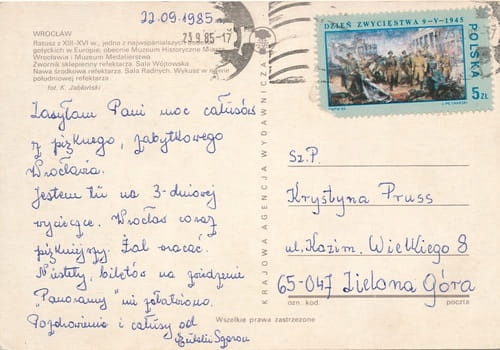 WROCŁAW
Ratusz z XIII-XVI w., jedna z najwspanialszych budowli
gotyckich w Europie; obecnie Muzeum Historyczne Miasta
Wrocławia i Muzeum Medalierstwa.
Zwornik sklepienny refektarza. Sala Wójtowska.
Nawa środkowa refektarza. Sala Radnych. Wykusz w nawie
południowej refektarza
fot. K. Jabłoński
22.09.1985
23.9.85-17
DZIEŃ ZWYCIĘSTWA 9-V-1945
POLSKA
5 ZŁ
Zasyłam Pani moc całusów
z pięknego, zabytkowego
Wrocławia.
Jestem tu na 3-dniowej
wycieczce. Wrocław coraz
piękniejszy. Żal wracać.
Niestety, biletów na zwiedzenie
"Panoramy" nie załatwiono.
Pozdrowienia i całusy od
KRAJOWA AGENCJA WYDAWNICZA
Sz.P.
Krystyna Pruss
ul. Kazim. Wielkiego 8
65-047 Zielona Góra
ozn. kod.
poczta
Wszelkie prawa zastrzeżone